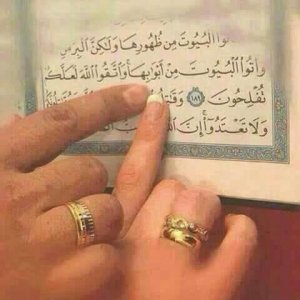 الْبُيُوتَ مِن ظُهُورِهَا وَلَٰكِنَّ الْبِرَّ مَنِ
وَأْتُوا۟ الْبُيُوتَ مِنْ أَبْوَابِهَا وَاتَّقُوا۟ اللَّهَ
تُفْلِحُونَ ١٨٩
وَلَا تَعْتَدُوا۟ إِنَّ